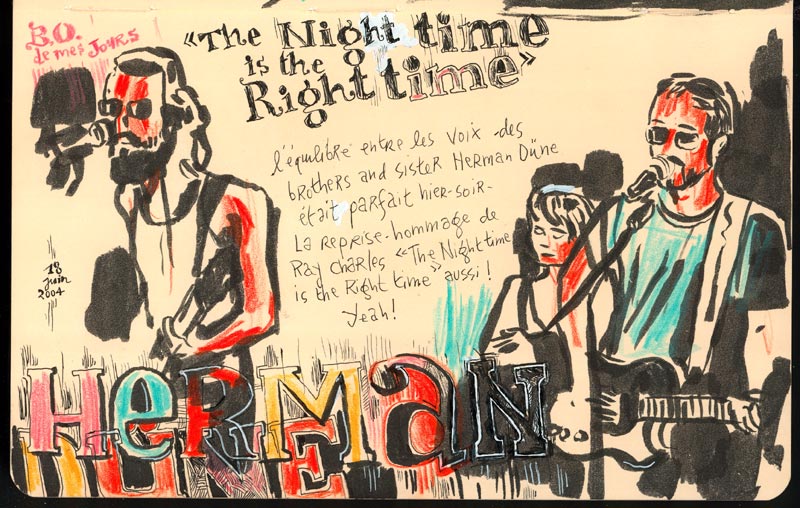 B.O.
de mes JOURS
"The Night time
is the
Right time"
l'équilibre entre les voix des
brothers and sister Herman Düne
était parfait hier-soir-
La reprise-hommage de
Ray Charles "The Night time
is the Right time" aussi!
Yeah!
18
juin
2004
HeRMaN
DUNE